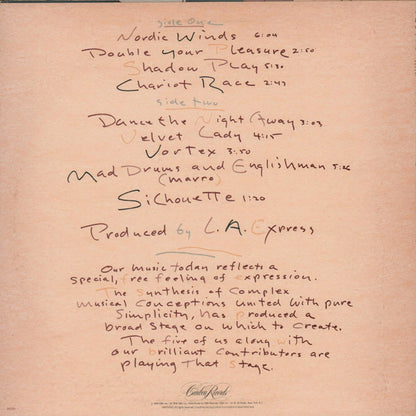 Side One
Nordic Winds 6:04
Double Your Pleasure 2:50
Shadow Play 5:30
Chariot Race 2:43
Side Two
Dance the Night Away 3:03
Velvet Lady 4:15
Vortex 3:50
Mad Drums and Englishman
(Marro)
Silhouette 1:20
Produced by L.A. Express
Our Music today reflects a
special, free feeling of expression.
The synthesis of Complex
Musical Conceptions united with pure
Simplicity, has produced a
broad Stage on which to Create.
The five of us along with
our brilliant Contributors are
playing That Stage.
Caribou Records